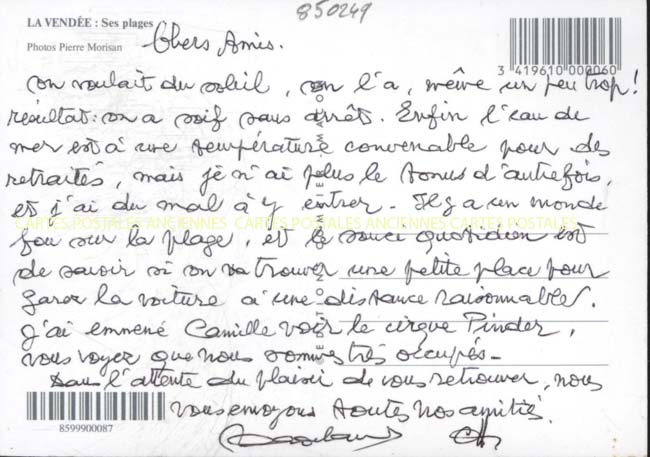 850249
LA VENDÉE : Ses plages
Photos Pierre Morisan
Chers Amis.
3 419610 000060
on voulait du soleil, on l'a, même un peu trop!
résultat: on a soif sans arrêt. Enfin l'eau de
mer est à une température convenable pour des
retraités, mais je n'ai plus le tonus d'autrefois,
et j'ai du mal à y entrer. Il y a un monde
CARTES POSTALES ANCIENNES CARTES POSTALES ANCIENNES CARTES POSTALES
fou sur la plage, et le souci quotidien est
de savoir si on va trouver une petite place pour
garer la voiture à une distance raisonnable.
J'ai emmené Camille voir le cirque Pinder,
vous voyez que nous sommes très occupés -
Dans l'attente du plaisir de vous retrouver, nous
vous envoyons toutes nos amitiés.
8599900087